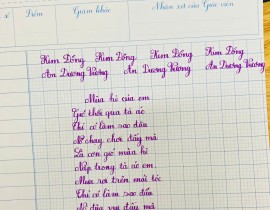 Điểm Tham khảo Nhận xét của Giáo viên
Kim Đồng Kim Đồng Kim Đồng Kim Đồng
An Dương Vương An Dương Vương An Dương Vương
Mùa hè của em
Gió thổi qua tà áo
Thì có làm sao đâu
Nô chạy, chơi đấy mà
Là con gió mùa hè
Nấp trong tà áo em.
Mưa rơi trên mái tóc
Thì có làm sao đâu